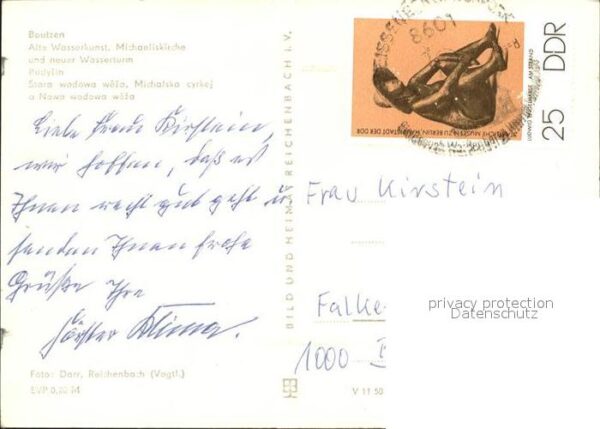 Bautzen
Alte Wasserkunst, Michaeliskirche
und neuer Wasserturm
Budyšin
Stara wodowa wěža, Michałska cyrkej
a Nowa wodowa wěža
Liebe Frau Kirstein,
wir hoffen, daß es
Ihnen recht gut geht u.
senden Ihnen frohe
Grüße Ihre
Foto: Darr, Reichenbach (Vogtl.)
EVP 0,20 M
BILD UND HEIMAT REICHENBACH i. V.
V 11 50
8601
STAATLICHE MUSEEN ZU BERLIN, HAUPTSTADT DER DDR
AM STRAND
25 DDR
Frau Kirstein
Falke
1000
privacy protection
Datenschutz